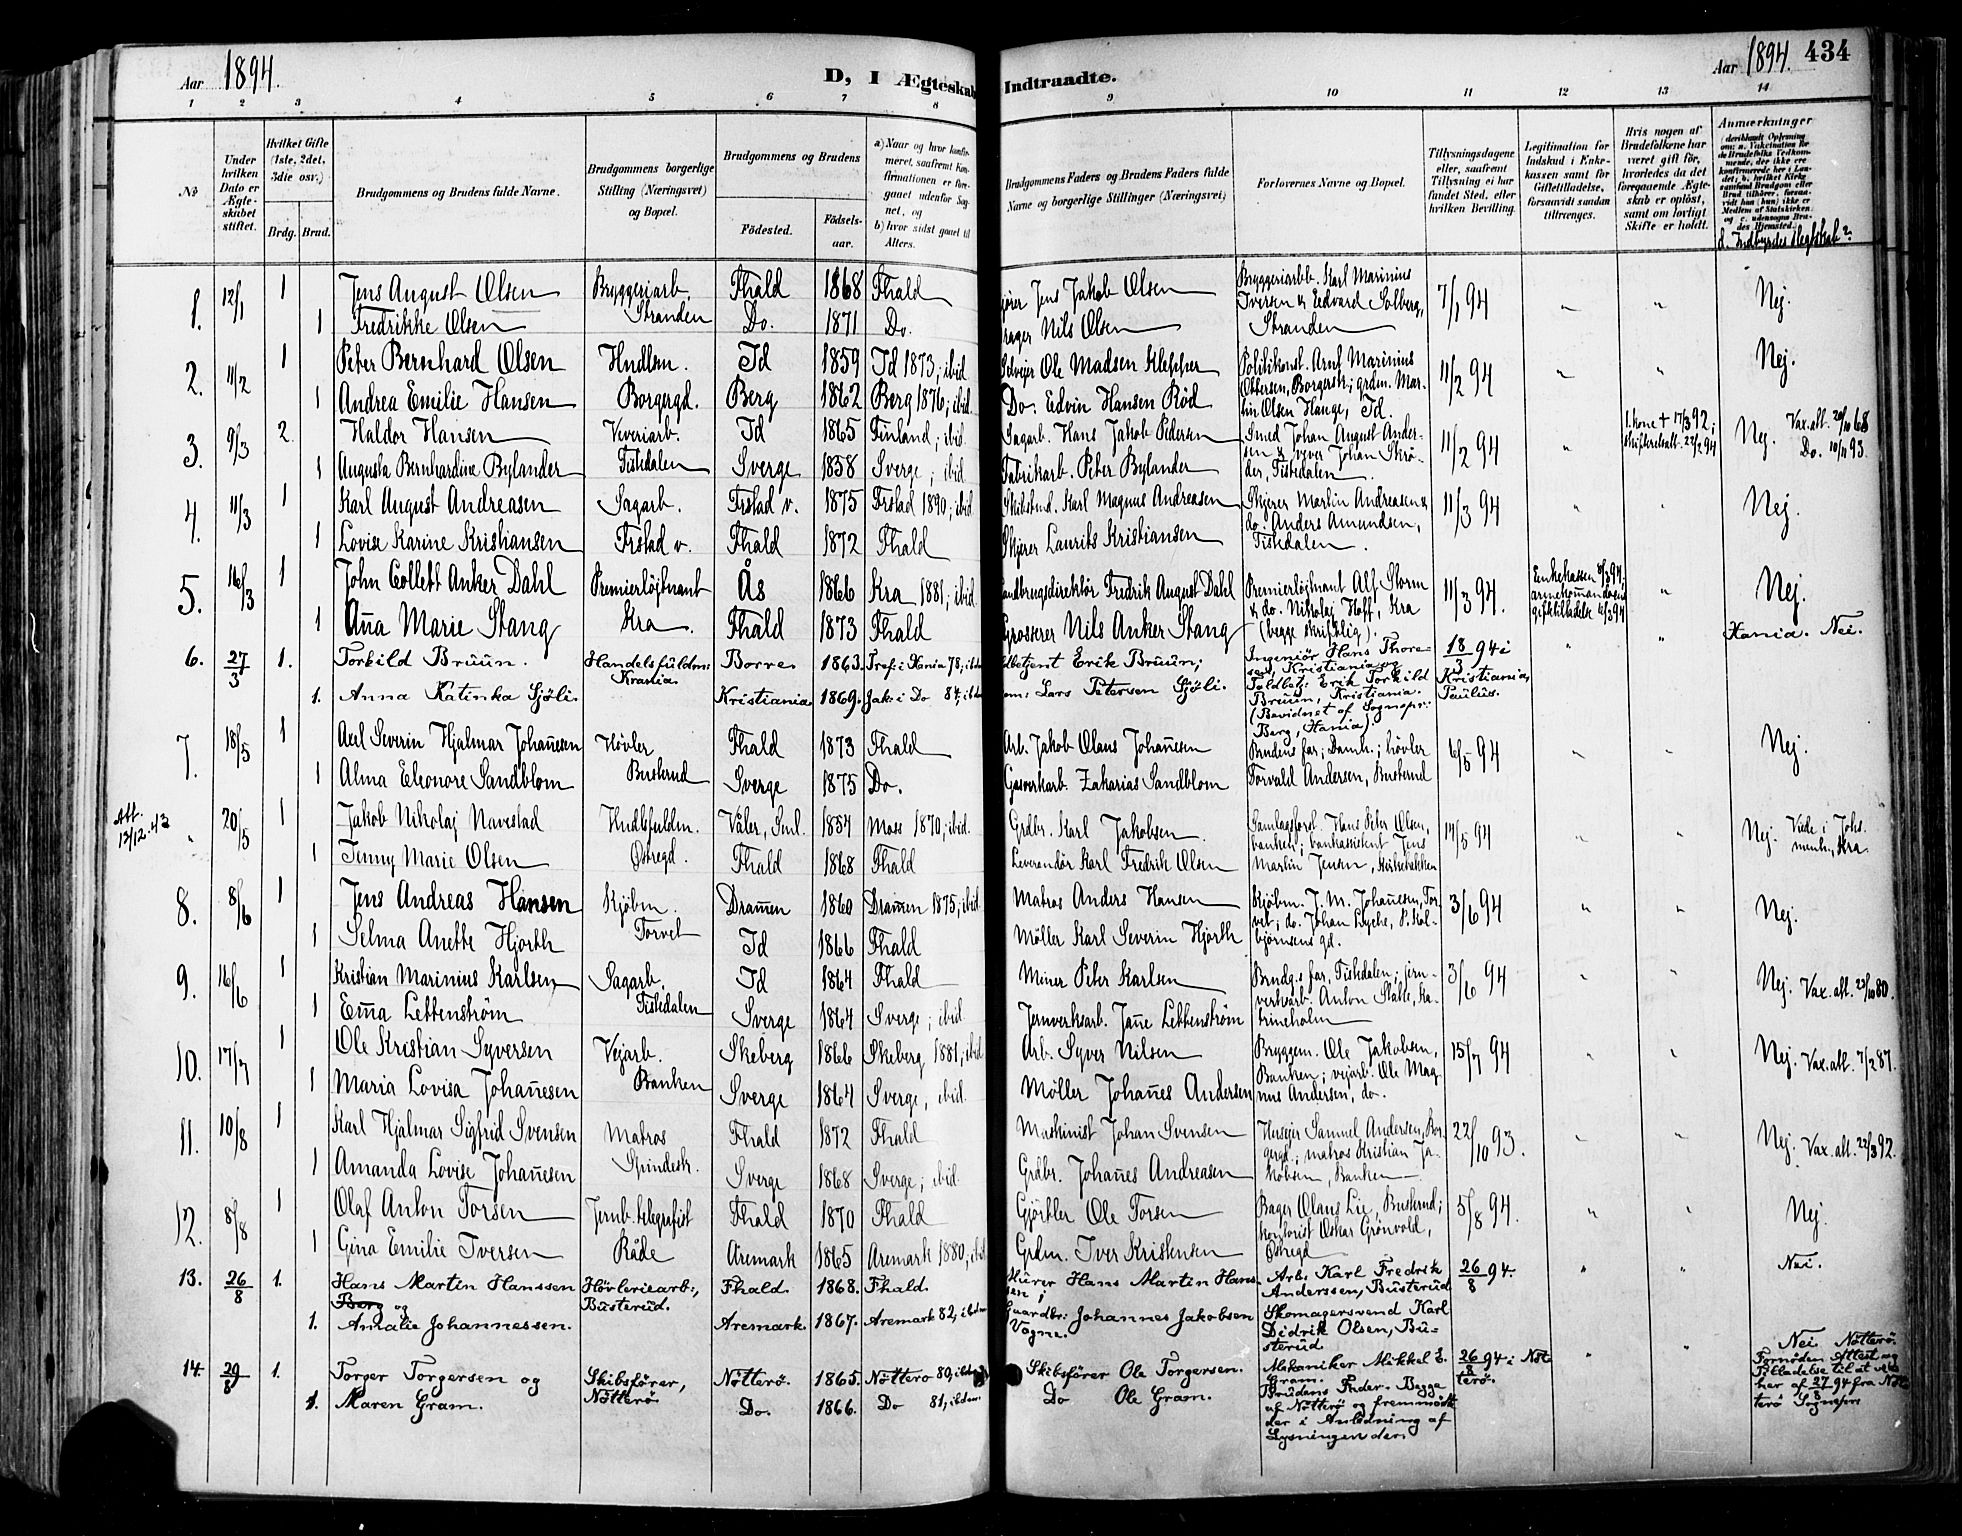 Aar 1894.
D, I Ægteskab
Indtraadte.
Aar 1894. 434
1 2 3 4 5 6 7 8 9 10 11 12 13 14
No
Under hvilken Dato er Ægteskabet stiftet.
Hvilket Gifte (1ste, 2det, 3die osv.)
Brdg. Brud.
Brudgommens og Brudens fulde Navne.
Brudgommens borgerlige Stilling (Næringsvei) og Bopæl.
Brudgommens og Brudens
Fødested.
Fødselsaar.
a) Naar og hvor konfirmeret, saafremt Konfirmationen er foregaaet udenfor Sognet, og
b) hvor sidst gaaet til Alters.
Brudgommens Faders og Brudens Faders fulde Navne og borgerlige Stillinger (Næringsvei)
Forlovernes Navne og Bopæl.
Tillysningsdagene eller, saafremt Tillysning ei har fundet Sted, efter hvilken Bevilling.
Legitimation for Indskud i Enkekassen samt for Giftetilladelse, forsaavidt saadan tiltrænges.
Hvis nogen af Brudefolkene har været gift før, hvorledes da det foregaaende Ægteskab er opløst, samt om lovligt Skifte er holdt.
Anmærkninger
d. Indbyrdes Slegtskab?
1. 12/1 1 Jens August Olsen Bryggeriarb. Fhald 1868 Fhald Jens Jakob Olsen Bryggeriarb. Karl Marinius 7/1 94 " " Nej.
1 Fredrikke Olsen Stranden Do. 1871 Do. Nils Olsen Iversen & Edvard Solberg, Stranden
2. 11/2 1 Peter Bernhard Olsen Hndlsm. Id 1859 Id 1873; ibid. Selvejer Ole Madsen Klepper Politikonst. Arnt Marinius 11/2 94 " " Nej.
1 Andrea Emilie Hansen Borgergd. Berg 1862 Berg 1876; ibid. Do: Edvin Hansen Rød Ottersen, Borgerst.; grdm. Martin Olsen Hauge, Id.
3. 9/3 2. Haldor Hansen Væveriarb. Id 1865 Finland; ibid. Sagarb. Hans Jakob Pedersen Smed Johan August Ander- 11/2 94 " 1. kone + 17/3 92; skifteretsatt. 22/2 94 Nej. Vax.att. 20/10 68
1 Augusta Bernhardine Bylander Tistedalen Sverge 1858 Sverge; ibid. Fabrikarb. Peter Bylander sen & væver Johan Skrøder, Tistedalen. Do. 10/11 93.
4. 11/3 1 Karl August Andreasen Sagarb. Frstad v. 1875 Frstad 1890; ibid. Skibstmd. Karl Magnus Andreasen Skjærer Martin Andreasen & 11/3 94 " " Nej.
1 Lovise Karine Kristiansen Frstad v. Fhald 1872 Fhald Skjærer Laurits Kristiansen do. Anders Amundsen, Tistedalen.
5. 16/3 1 John Collett Anker Dahl Premierløjtnant Ås 1866 Kra 1881; ibid. Landbrugsdirektør Fredrik August Dahl Premierløjtnant Alf Storm 11/3 94. Enkekassen 8/3 94, armekommandoens giftetilladelse 6/3 94 " Nej.
1 Anna Marie Stang Kra. Fhald 1873 Fhald Grosserer Nils Anker Stang & do. Nikolaj Hoff, Kra (begge skriftlig).
6. 27/3 1. Torkild Bruun. Handelsfuldm: Borre. 1863. Tref: i Xania 78; ibdm. Toldbetjent Erik Bruun; Ingeniør Hans Thoresen, Kristiania og 18/3 94 i " " Xania. Nei.
1. Anna Katinka Sjöli. Krania. Kristiania 1869. Jak: i Do 84; ibdm Lars Petersen Sjöli. Toldbet: Erik Torkild Bruun, Kristiania. (Bevidnet af Sognepr: Berg, Xania). Kristiania, Paulus.
7. 18/5 1 Axel Severin Hjalmar Johannesen Høvler Fhald 1873 Fhald Arb. Jakob Olaus Johannesen Brudens far; Damh.; høvler 6/5 94 " " Nej.
1 Alma Eleonore Sandblom Busterud Sverge 1875 Do. Gasverkarb. Zakarias Sandblom Torvald Andersen, Busterud
Att. 13/12.43
" 20/5 1 Jakob Nikolaj Navestad Hndlsfuldm. Våler, Sml. 1854 Moss 1870; ibid. Grdbr. Karl Jakobsen Samlagsforst. Hans Peter Olsen, 14/5 94 " " Nej. Viede i Johs. menh., Kra.
1 Jenny Marie Olsen Østregd. Fhald 1868 Fhald Leverandør Karl Fredrik Olsen banken; bankassistent Jens Martin Jensen,
8. 8/6 1 Jens Andreas Hansen Kjøbm. Drammen 1860 Drammen 1875; ibid. Matros Anders Hansen Kjøbm. J. M. Johannesen, Tor- 3/6 94 " " Nej.
1 Selma Anette Hjorth Torvet Id 1866 Fhald Møller Karl Severin Hjorth vet; do. Johan Lyche, P. Kolbjørnsens gd.
9. 16/6 1 Kristian Marinius Karlsen Sagarb. Id 1864 Fhald Miner Peter Karlsen Brudg.s far, Tistedalen; jern- 3/6 94 " " Nej. Vax.att. 23/10 80.
1 Emma Lettenström Tistedalen Sverge 1864 Sverge; ibid. Jernverksarb. Janne Lettenström verksarb. Anton Støtte, Katrineholm
10. 17/7 1 Ole Kristian Syversen Vejarb. Skeberg 1866 Skeberg 1881; ibid Arb. Syver Nilsen Bryggem. Ole Jakobsen, 15/7 94 " " Nej. Vax.att. 7/2 87.
1 Maria Lovisa Johannesen Banken Sverge 1864 Sverge, ibid. Møller Johannes Andersen Banken; vejarb. Ole Magnus Andersen, do.
11. 10/8 1 Karl Hjalmar Sigfrid Svensen Matros Fhald 1872 Fhald Maskinist Johan Svensen Husejer Samuel Andersen, Bor- 22/10 93. " " Nej. Vax.att. 22/3 92.
1 Amanda Lovise Johannesen Spindesk. Sverge 1868 Sverge; ibid. Grdbr. Johannes Andreasen gergd.; matros Kristian Jakobsen, Banken
12. 8/8 1 Olaf Anton Torsen Jernb. telegrafist Fhald 1870 Fhald Gjørtler Ole Torsen Bager Olaus Lie, Busterud; 5/8 94. " " Nej.
1 Gina Emilie Iversen Råde Aremark 1865 Aremark 1880; ibid. Grdm. Iver Kristensen kontorist Oskar Grønvold, Østregd
13. 26/8 1. Hans Martin Hanssen Høvleriearb:, Fhald. 1868. Fhald. Murer Hans Martin Hanssen; Arb: Karl Fredrik Anderssen, Busterud 26/8 94. " " Nei.
Berg og Busterud.
1. Amalie Johannessen. Aremark. 1867. Aremark 82, ibidm Gaardbr: Johannes Jakobsen Vogne. Skomagersvend Karl Didrik Olsen, Busterud
14. 29/8 1. Torger Torgersen og Skibsfører, Nøtterø. 1865. Nøtterø 80, ibidm Skibsfører Ole Torgersen. Mekaniker Mikkel E. Gram. 26/8 94 i Nøtterø. " " Nei Nøtterø.
1. Maren Gram. Nøtterø Do. 1866. Do 81, ibdm. Do Ole Gram. Brudens Fader. Begge af Nøtterø og fremmødt der i Anledning af Lysningen der. Fornøden Attest og Tilladelse til at vies her af 27/8 94 fra Nøtterø Sognepr